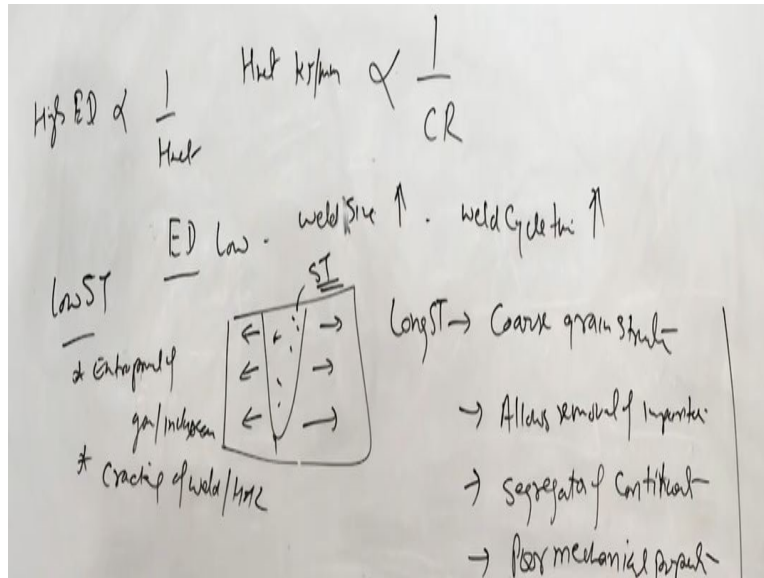 High ED ∝ 1/Hnet
Hnet kJ/mm ∝ 1/CR
ED Low . weld size ↑ . weld Cycle time ↑
low ST
* Entrapment of
gas/inclusion
* Cracking of weld/HAZ
ST
Long ST → Coarse grain struct
→ Allows removal of impurities
→ Segregation of Constituent
→ Poor mechanical propert